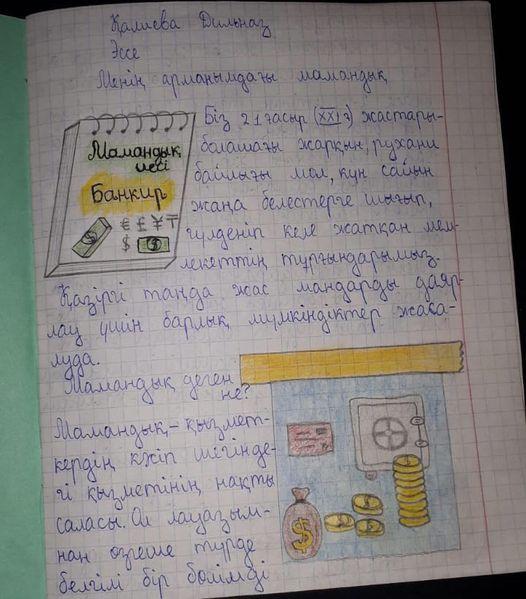 Қалиева Дильназ
Эссе
Менің арманымдағы мамандық
Мамандық
иесі
Банкир
€ £ ¥ ₸
$ $
Біз 21 ғасыр (XXI ғ) жастары-
болашағы жарқын, рухани
байлығы мол, күн сайын
жаңа белестерге шығып,
гүлденіп келе жатқан мем-
лекеттің тұрғындарымыз.
Қазіргі таңда жас мандарды даяр-
лау үшін барлық мүмкіндіктер жаса-
луда.
Мамандық деген
не?
Мамандық - қызмет-
кердің кәсіп шігінде-
гі қызметінің нақты
саласы. Ол лауазым-
нан өзгеше түрде
белгілі бір бөлімді
$